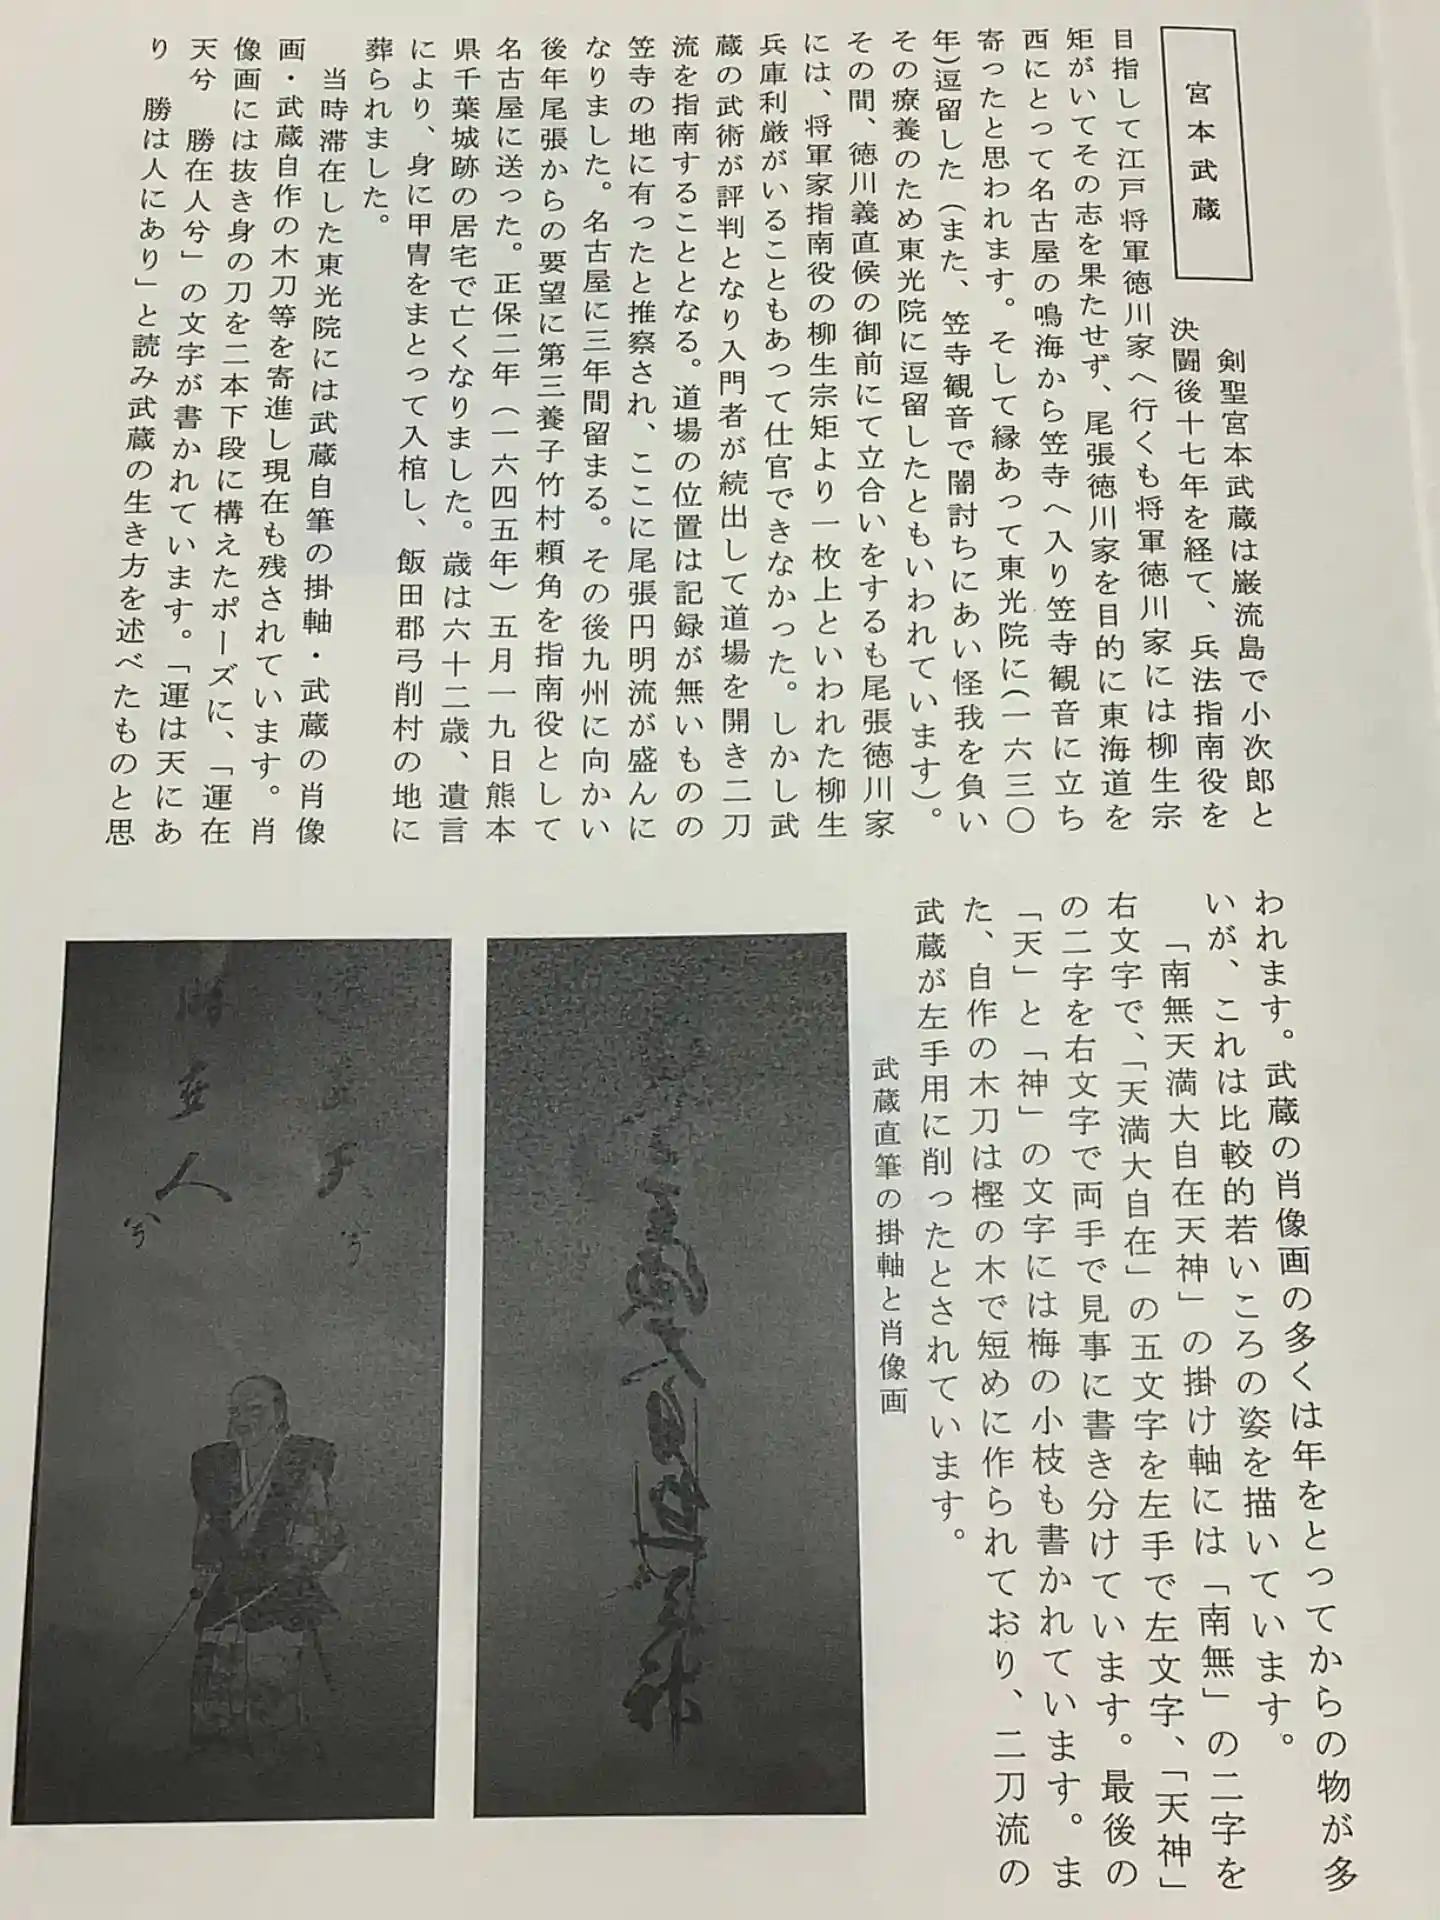 宮本武蔵
剣聖宮本武蔵は巌流島で小次郎と
決闘後十七年を経て、兵法指南役を
目指して江戸将軍徳川家へ行くも将軍徳川家には柳生宗
矩がいてその志を果たせず、尾張徳川家を目的に東海道を
西にとって名古屋の鳴海から笠寺へ入り笠寺観音に立ち
寄ったと思われます。そして縁あって東光院に(一六三〇
年)逗留した（また、笠寺観音で闇討ちにあい怪我を負い
その療養のため東光院に逗留したともいわれています）。
その間、徳川義直候の御前にて立合いをするも尾張徳川家
には、将軍家指南役の柳生宗矩より一枚上といわれた柳生
兵庫利厳がいることもあって仕官できなかった。しかし武
蔵の武術が評判となり入門者が続出して道場を開き二刀
流を指南することとなる。道場の位置は記録が無いものの
笠寺の地に有ったと推察され、ここに尾張円明流が盛んに
なりました。名古屋に三年間留まる。その後九州に向かい
後年尾張からの要望に第三養子竹村頼角を指南役として
名古屋に送った。正保二年（一六四五年）五月一九日熊本
県千葉城跡の居宅で亡くなりました。歳は六十二歳、遺言
により、身に甲冑をまとって入棺し、飯田郡弓削村の地に
葬られました。
当時滞在した東光院には武蔵自筆の掛軸・武蔵の肖像
画・武蔵自作の木刀等を寄進し現在も残されています。肖
像画には抜き身の刀を二本下段に構えたポーズに、「運在
天兮　勝在人兮」の文字が書かれています。「運は天にあ
り　勝は人にあり」と読み武蔵の生き方を述べたものと思
われます。武蔵の肖像画の多くは年をとってからの物が多
いが、これは比較的若いころの姿を描いています。
「南無天満大自在天神」の掛け軸には「南無」の二字を
右文字で、「天満大自在」の五文字を左手で左文字、「天神」
の二字を右文字で両手で見事に書き分けています。最後の
「天」と「神」の文字には梅の小枝も書かれています。ま
た、自作の木刀は樫の木で短めに作られており、二刀流の
武蔵が左手用に削ったとされています。
武蔵直筆の掛軸と肖像画
天兮
勝在人兮